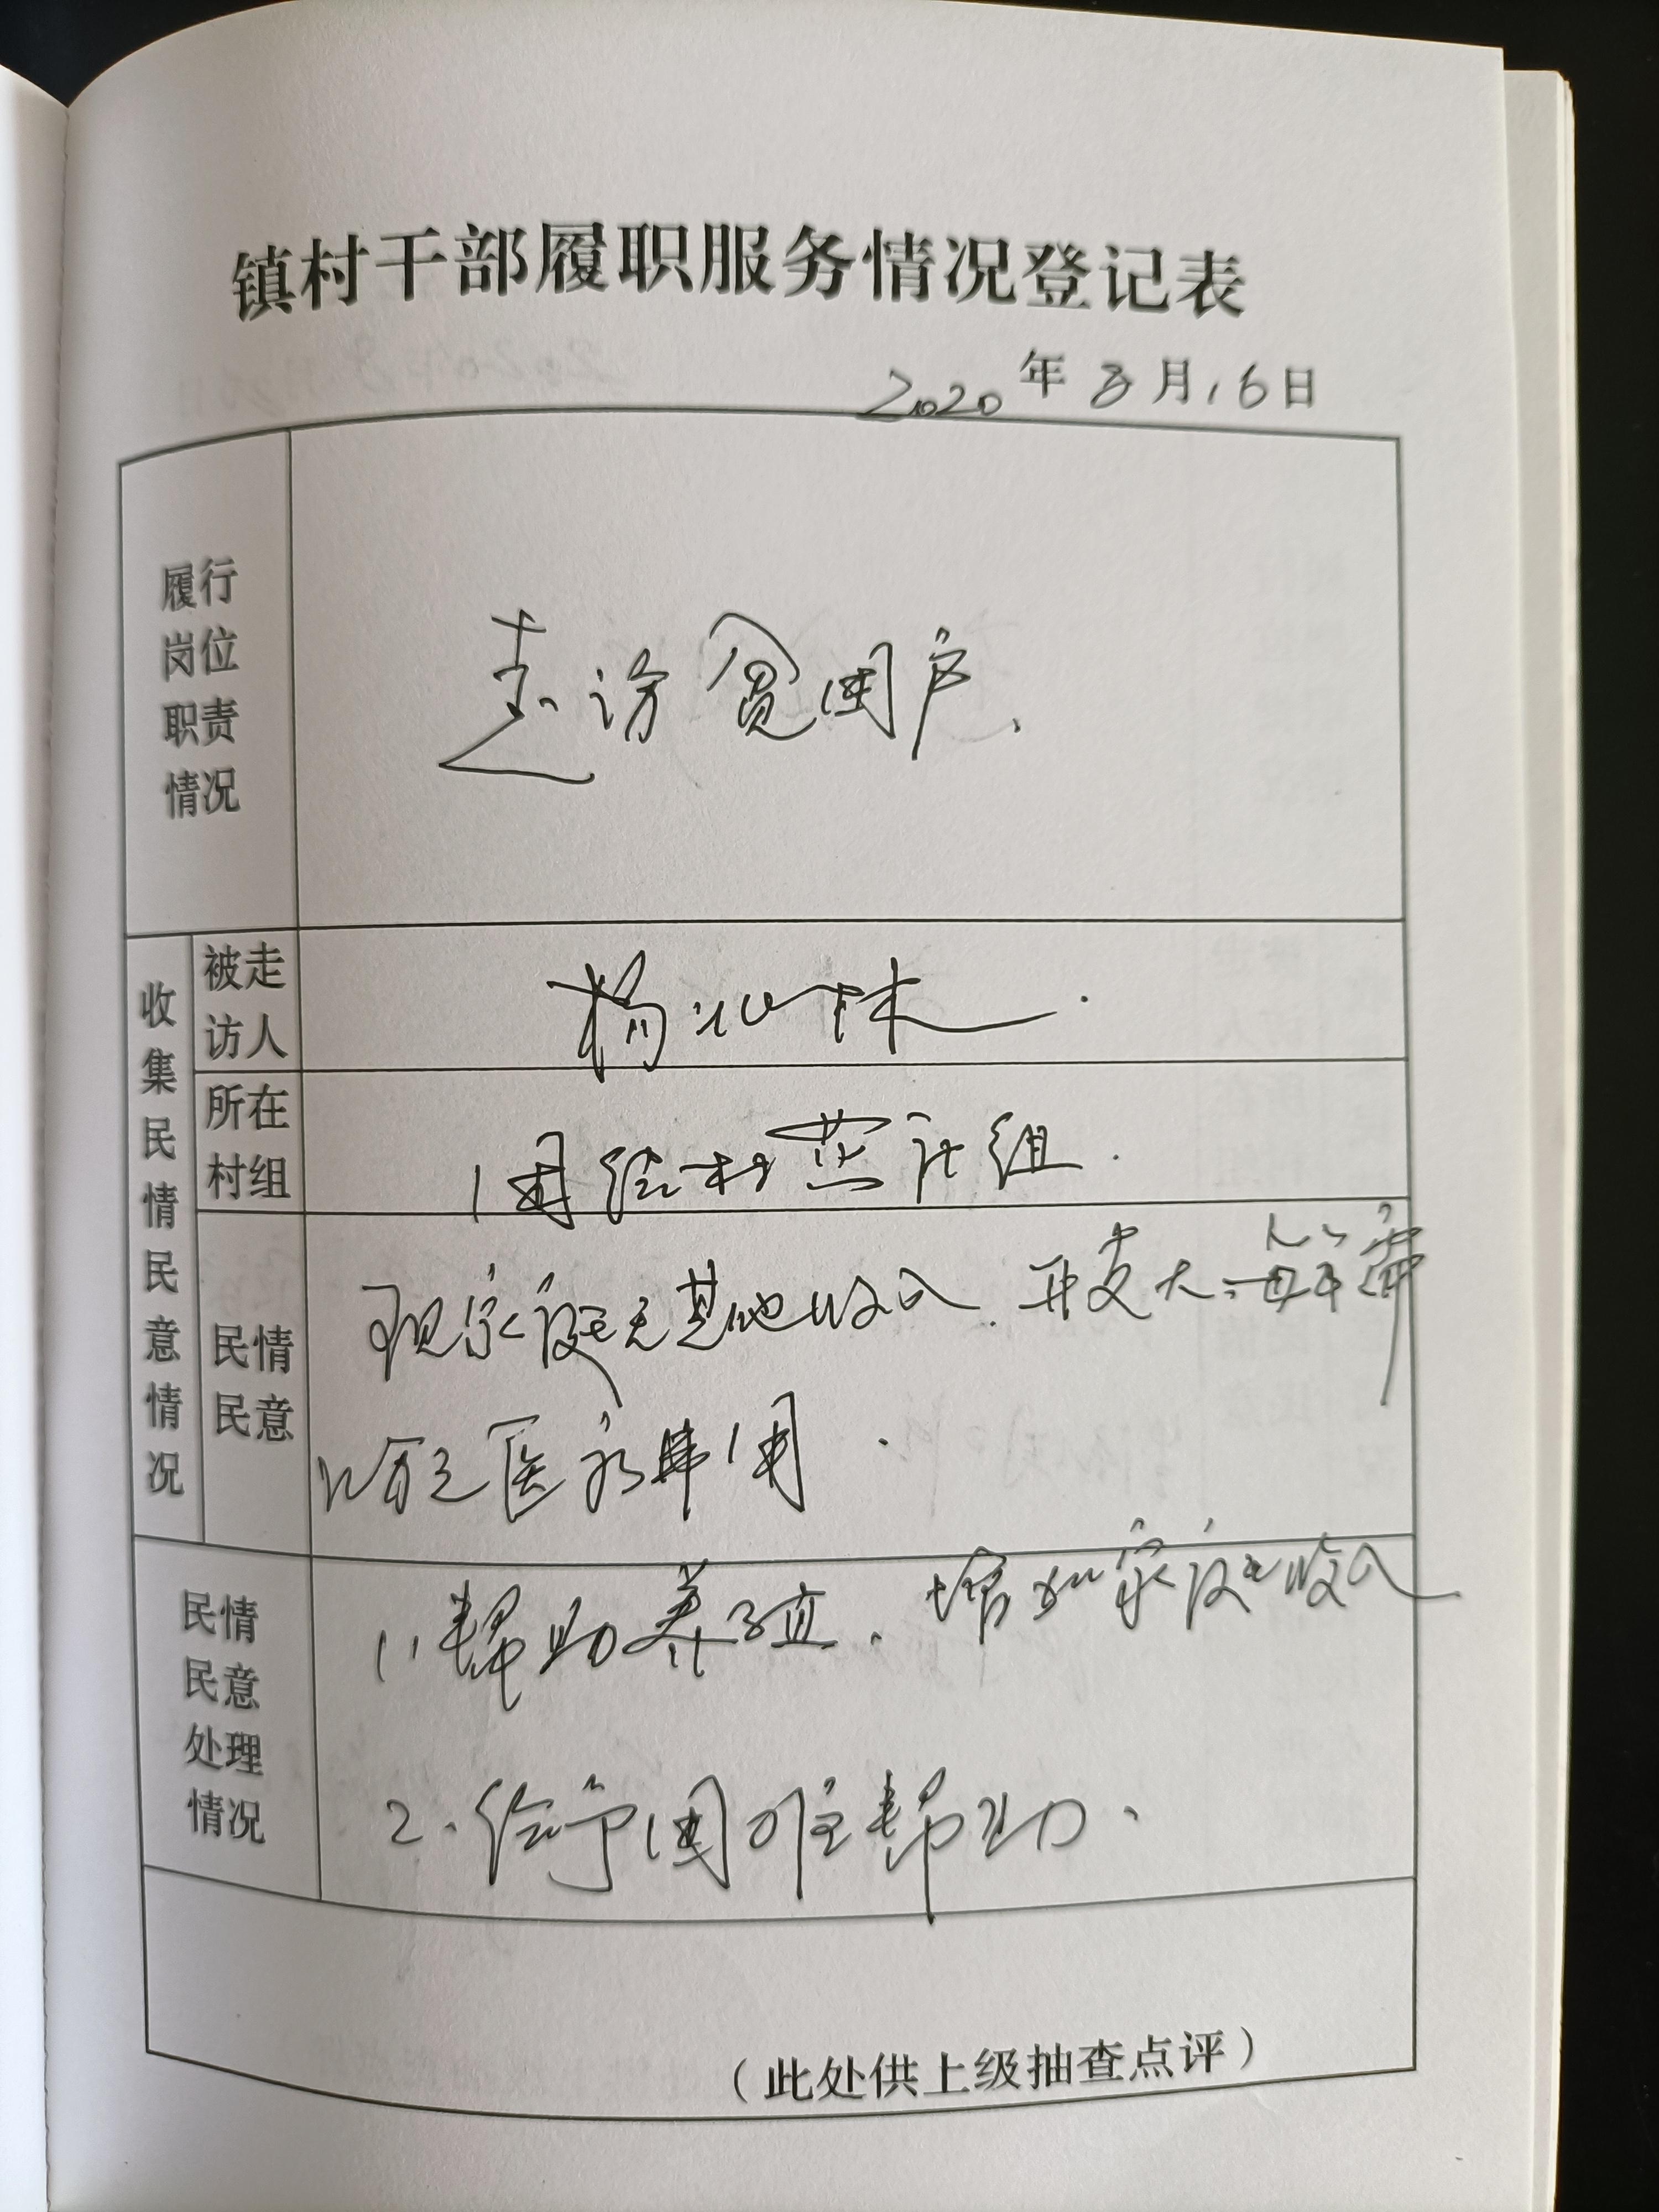 镇村干部履职服务情况登记表
2020年3月16日
履行
岗位
职责
情况
走访贫困户、
收集民情民意情况
被走
访人
杨
所在
村组
村 组.
民情
民意
现家庭无其他收入、开支大、每年需
医疗费用.
民情
民意
处理
情况
1、帮助养殖、增加家庭收入
2、给予困难帮助、
(此处供上级抽查点评)